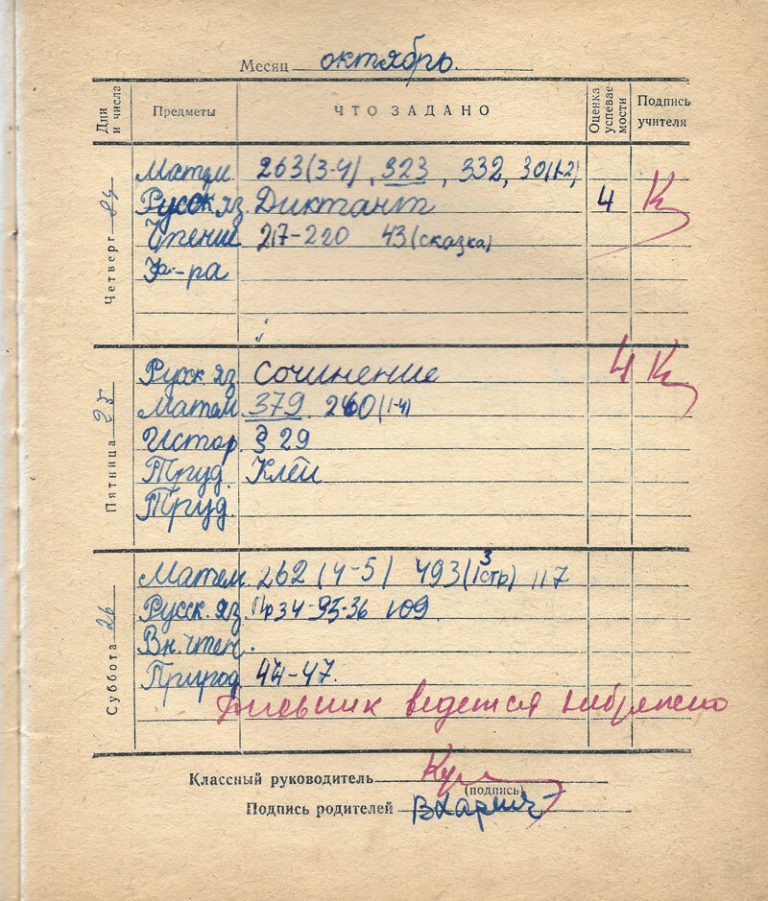 Месяц октябрь.
Дни и числа Предметы ЧТО ЗАДАНО Оценка успеваемости Подпись учителя
Четверг 24
Матем 263(3-4), 323, 332, 30(1-2)
Русск яз. Диктант 4
Чтение 217-220 43(сказка)
Ф-ра
Пятница 25
Русск яз Сочинение 4
Матем 379 260(1-4)
Истор. § 29
Труд. Клей
Труд.
Суббота 26
Матем 262(4-5) 493(3 стр) 117
Русск. яз. 109
Вн. чтен.
Природ 44-47.
Дневник ведется небрежно
Классный руководитель
(подпись)
Подпись родителей